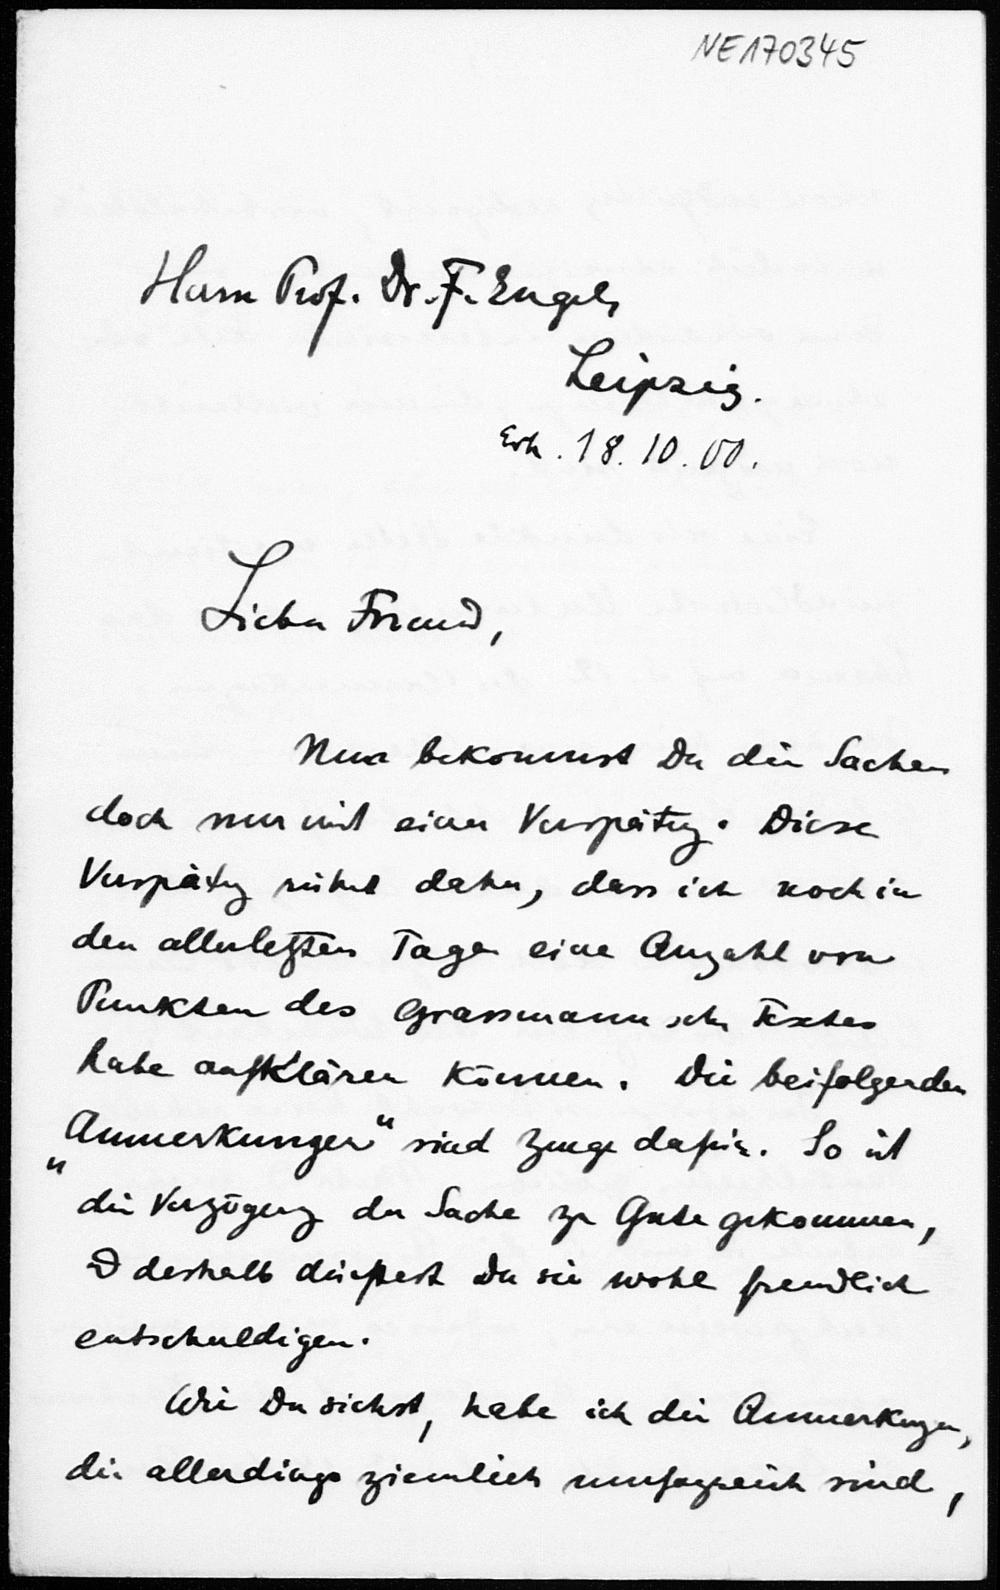 NE170345
Herrn Prof. Dr. F. Engel,
Leipzig.
Erh. 18. 10. 00.
Lieber Freund,
Nun bekommst Du die Sachen
doch nur mit einer Verspätg. Diese
Verspätg rührt daher, dass ich noch in
den allerletzten Tagen eine Anzahl von
Punkten des Grassmannschen Textes
habe aufklären können. Die beifolgenden
„Anmerkungen“ sind Zeuge dafür. So ist
die Verzögerg der Sache zu Gute gekommen,
& deshalb dürftest Du sie wohl freundlich
entschuldigen.
Wie Du siehst, habe ich die Anmerkgen,
die allerdings ziemlich umfagreich sind,